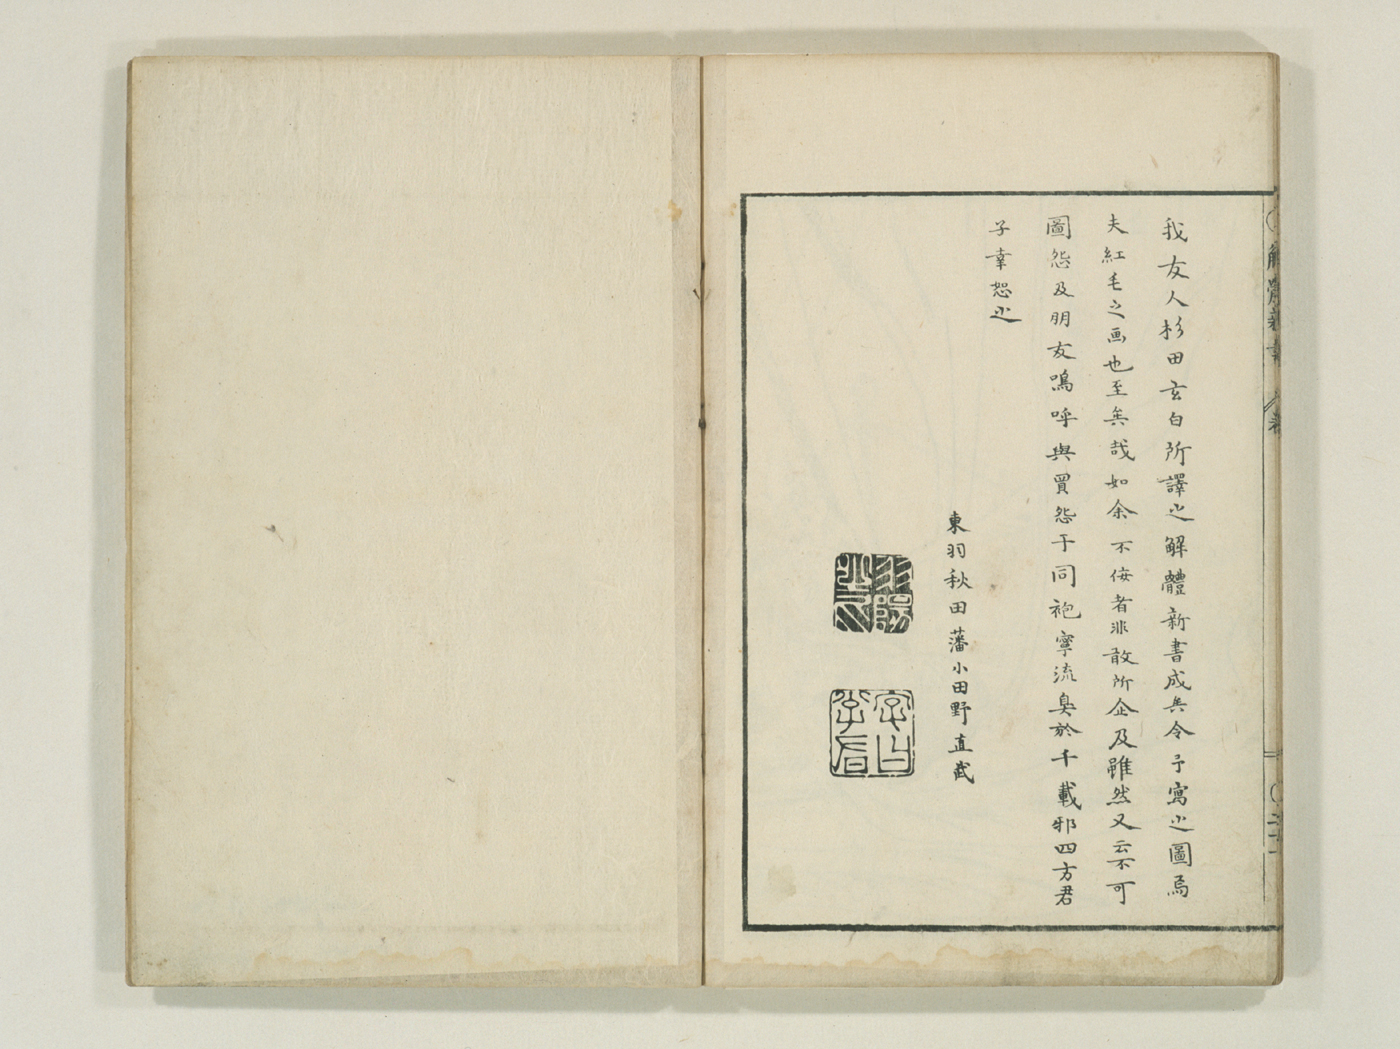 解體新書
我友人杉田玄白所譯之解體新書成矣令予寫之圖焉
夫紅毛之画也至矣哉如余不佞者非敢所企及雖然又云不可
圖怨及朋友嗚呼與買怨于同袍寧流臭於千載邪四方君
子幸恕之
東羽秋田藩小田野直武